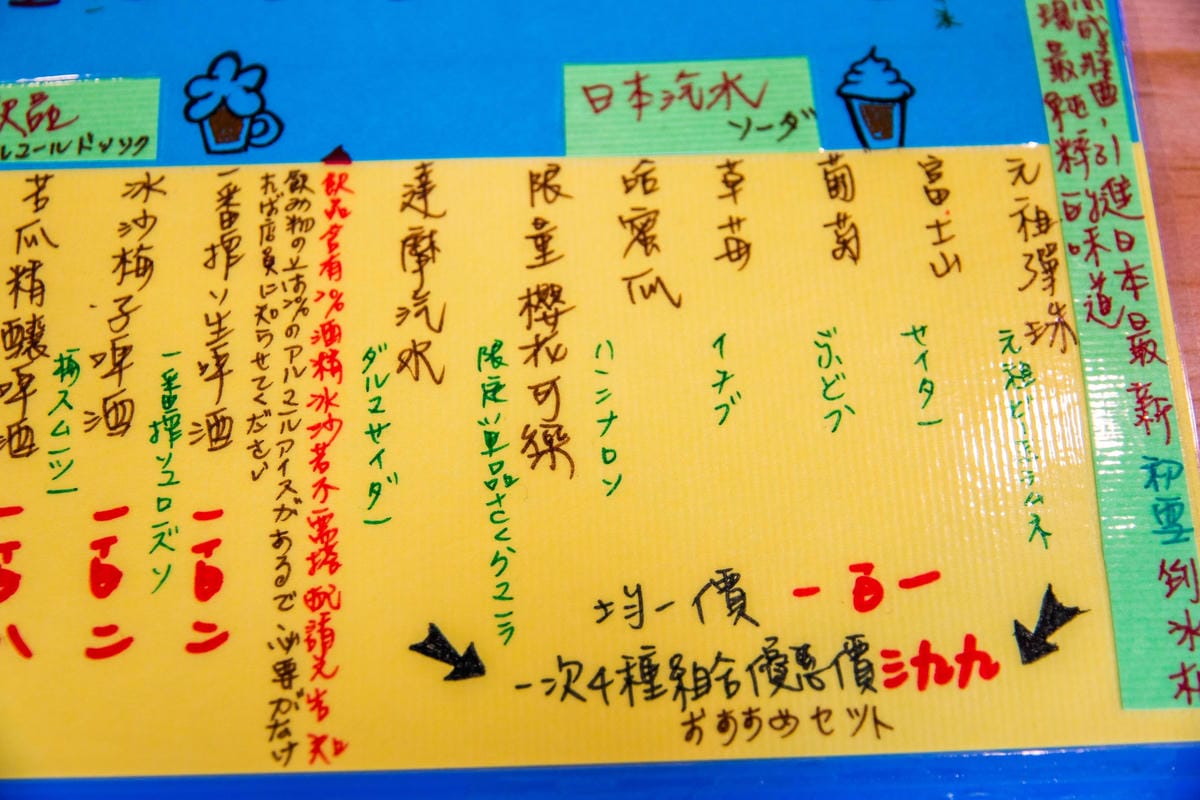 引進日本最新初雪倒冰
現最純粹的味道
日本汽水
ソーダ
元祖彈珠
富士山
サイター
葡萄
ぶどう
草莓
イチゴ
哈蜜瓜
ハンナロン
限量櫻花可樂
限定單品さくらコーラ
達摩汽水
ダルマサイダー
均一價 一百一
一次4種組合優惠價三九九
おすすめセット
飲品
ルコールドッリンク
飲品含有2%酒精冰沙若不需搭配請先告知
飲み物の上は2%のアルコールアイスがあるで必要がなけ
れば店員に知らせてください
一番搾り生啤酒
一百二
冰沙梅子啤酒
梅スムツー
一百二
苦瓜精釀啤酒
一百八